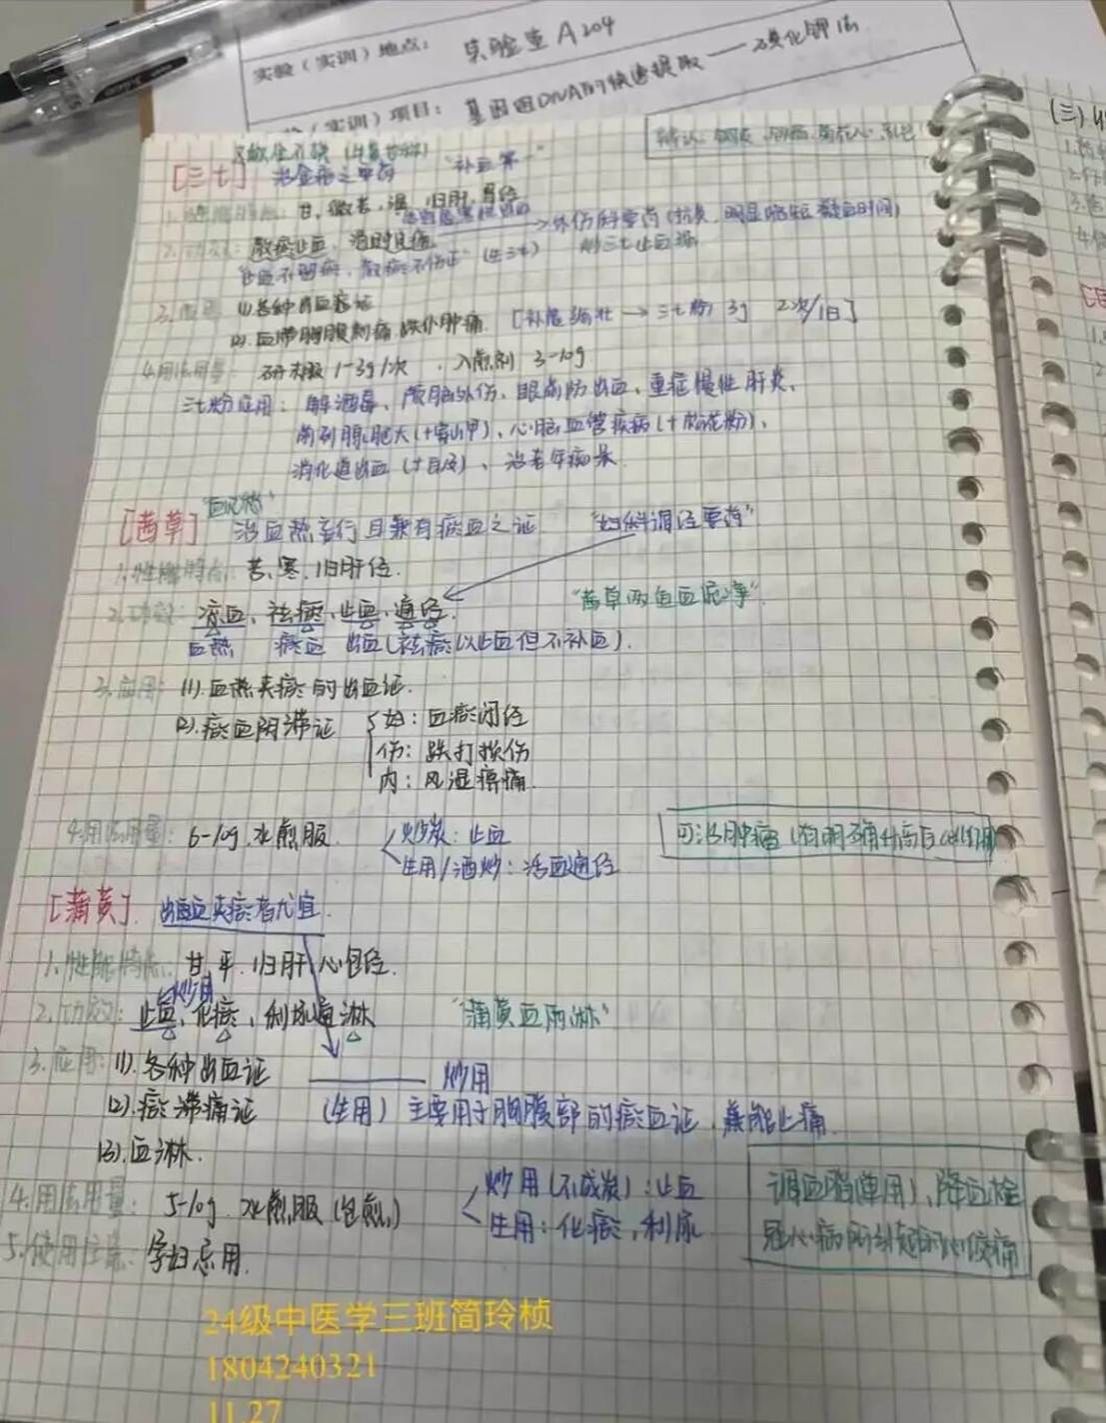 实验（实训）地点： 实验室A204
（实训）项目： 基因组DNA的快速提取——碘化钾法
[三七] 治金疮之要药 "补血第一"
甘、微苦，温，归肝、胃经
2.功效：散瘀止血，消肿定痛 → 外伤科要药（抗炎，明显缩短凝血时间）
止血不留瘀，散瘀不伤正
3.应用 (1).各种出血症证
(2).血滞胸腹刺痛，跌仆肿痛 [补虚强壮→三七粉 3g 2次/日]
4.用法用量： 研末服 1-3g/次 ，入煎剂 3-10g
三七粉应用： 解酒毒、颅脑外伤、眼前防出血、重症慢性肝炎、
前列腺肥大（+穿山甲）、心脑血管疾病（+松花粉）、
消化道出血（+白及）、治老年痴呆
[茜草] 治血热妄行且兼有瘀血之证 "妇科调经要药"
1.性能特点：苦、寒，归肝经.
2.功效：凉血、祛瘀、止血、通经. "茜草两色血泥净"
血热 瘀血 出血（祛瘀以止血但不补血）.
3.应用： (1).血热夹瘀的出血证.
(2).瘀血阻滞证 妇：血瘀闭经
伤：跌打损伤
内：风湿痹痛.
4.用法用量：6-10g.水煎服. 炒炭：止血
生用/酒炒：活血通经
可治肿瘤
[蒲黄]. 出血夹瘀者尤宜.
1.性能特点：甘，平.归肝，心包经.
炒用
2.功效：止血、化瘀、利尿通淋 "蒲黄血两淋"
3.应用：(1).各种出血证 —— 炒用
(2).瘀滞痛证 （生用）主要用于胸腹部的瘀血证，兼能止痛.
(3).血淋.
4.用法用量： 5-10g.水煎服（包煎） 炒用（不成炭）：止血
生用：化瘀，利尿
调血脂（单用）、降血栓
冠心病所引起的心绞痛
5.使用注意：孕妇忌用.
24级中医学三班简玲桢
1804240321
11.27